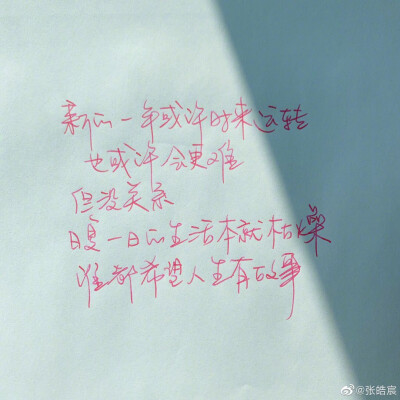 新的一年或许时来运转
也或许会更难
但没关系
日复一日的生活本就枯燥
谁都希望人生有故事
@张皓宸